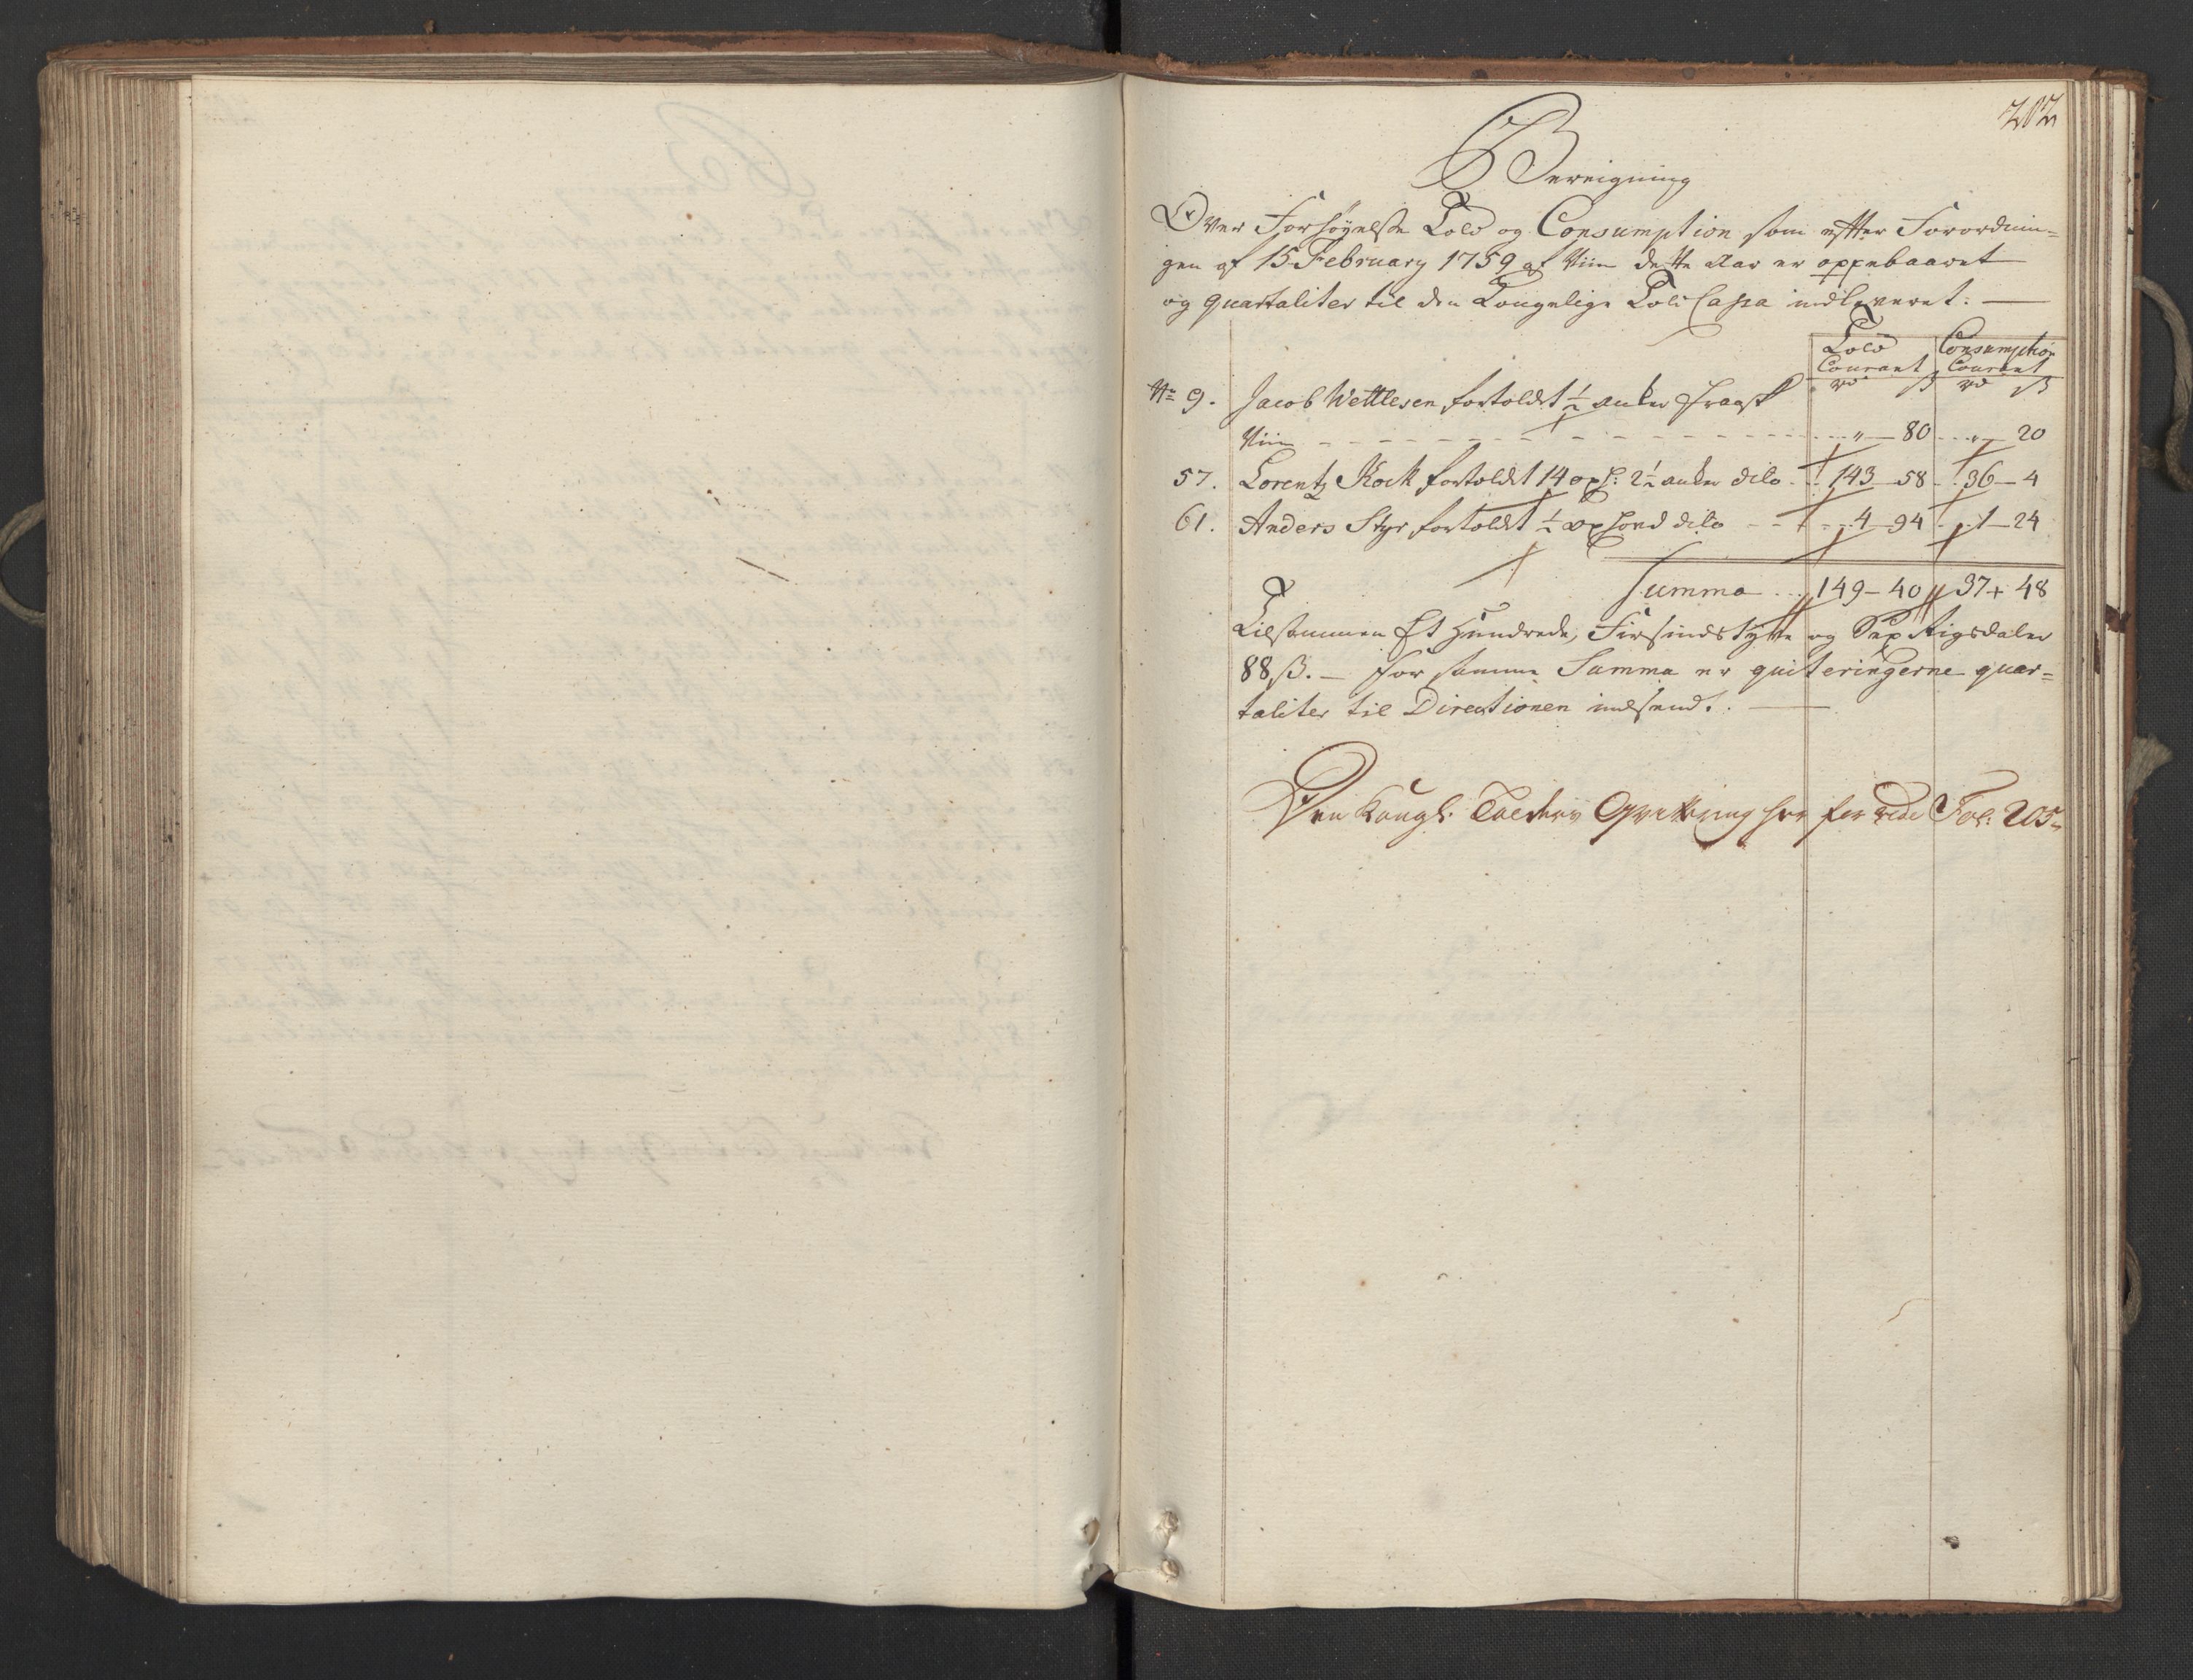 202
Bereigning
Over Forhøyelse Told og Consumption som efter Forordnin=
gen af 15 February 1759 af Viin dette Aar er oppebaaret
og quartaliter til den Kongelige Told Cassa indleveret:
Told Consumption
Courant Courant
rd ß rd ß
No 9. Jacob Wettlesen fortoldet ½ anker fransk
Viin - - - " 80 " 20
57. Lorentz Kock fortoldet 14 oxh: 2½ anker dito 143 58 36 4
61. Anders Styr fortoldet ½ oxhoved dito 4 94 1 24
Summa 149 - 40 37 48
Tilsammen Et Hundrede, Firsindstyve og Sex Rigsdaler
88 ß. - for samme Summa er quiteringerne quar=
taliter til Directionen indsendt.
Den Kongl: Tolders Qvittering her for vide Fol: 205